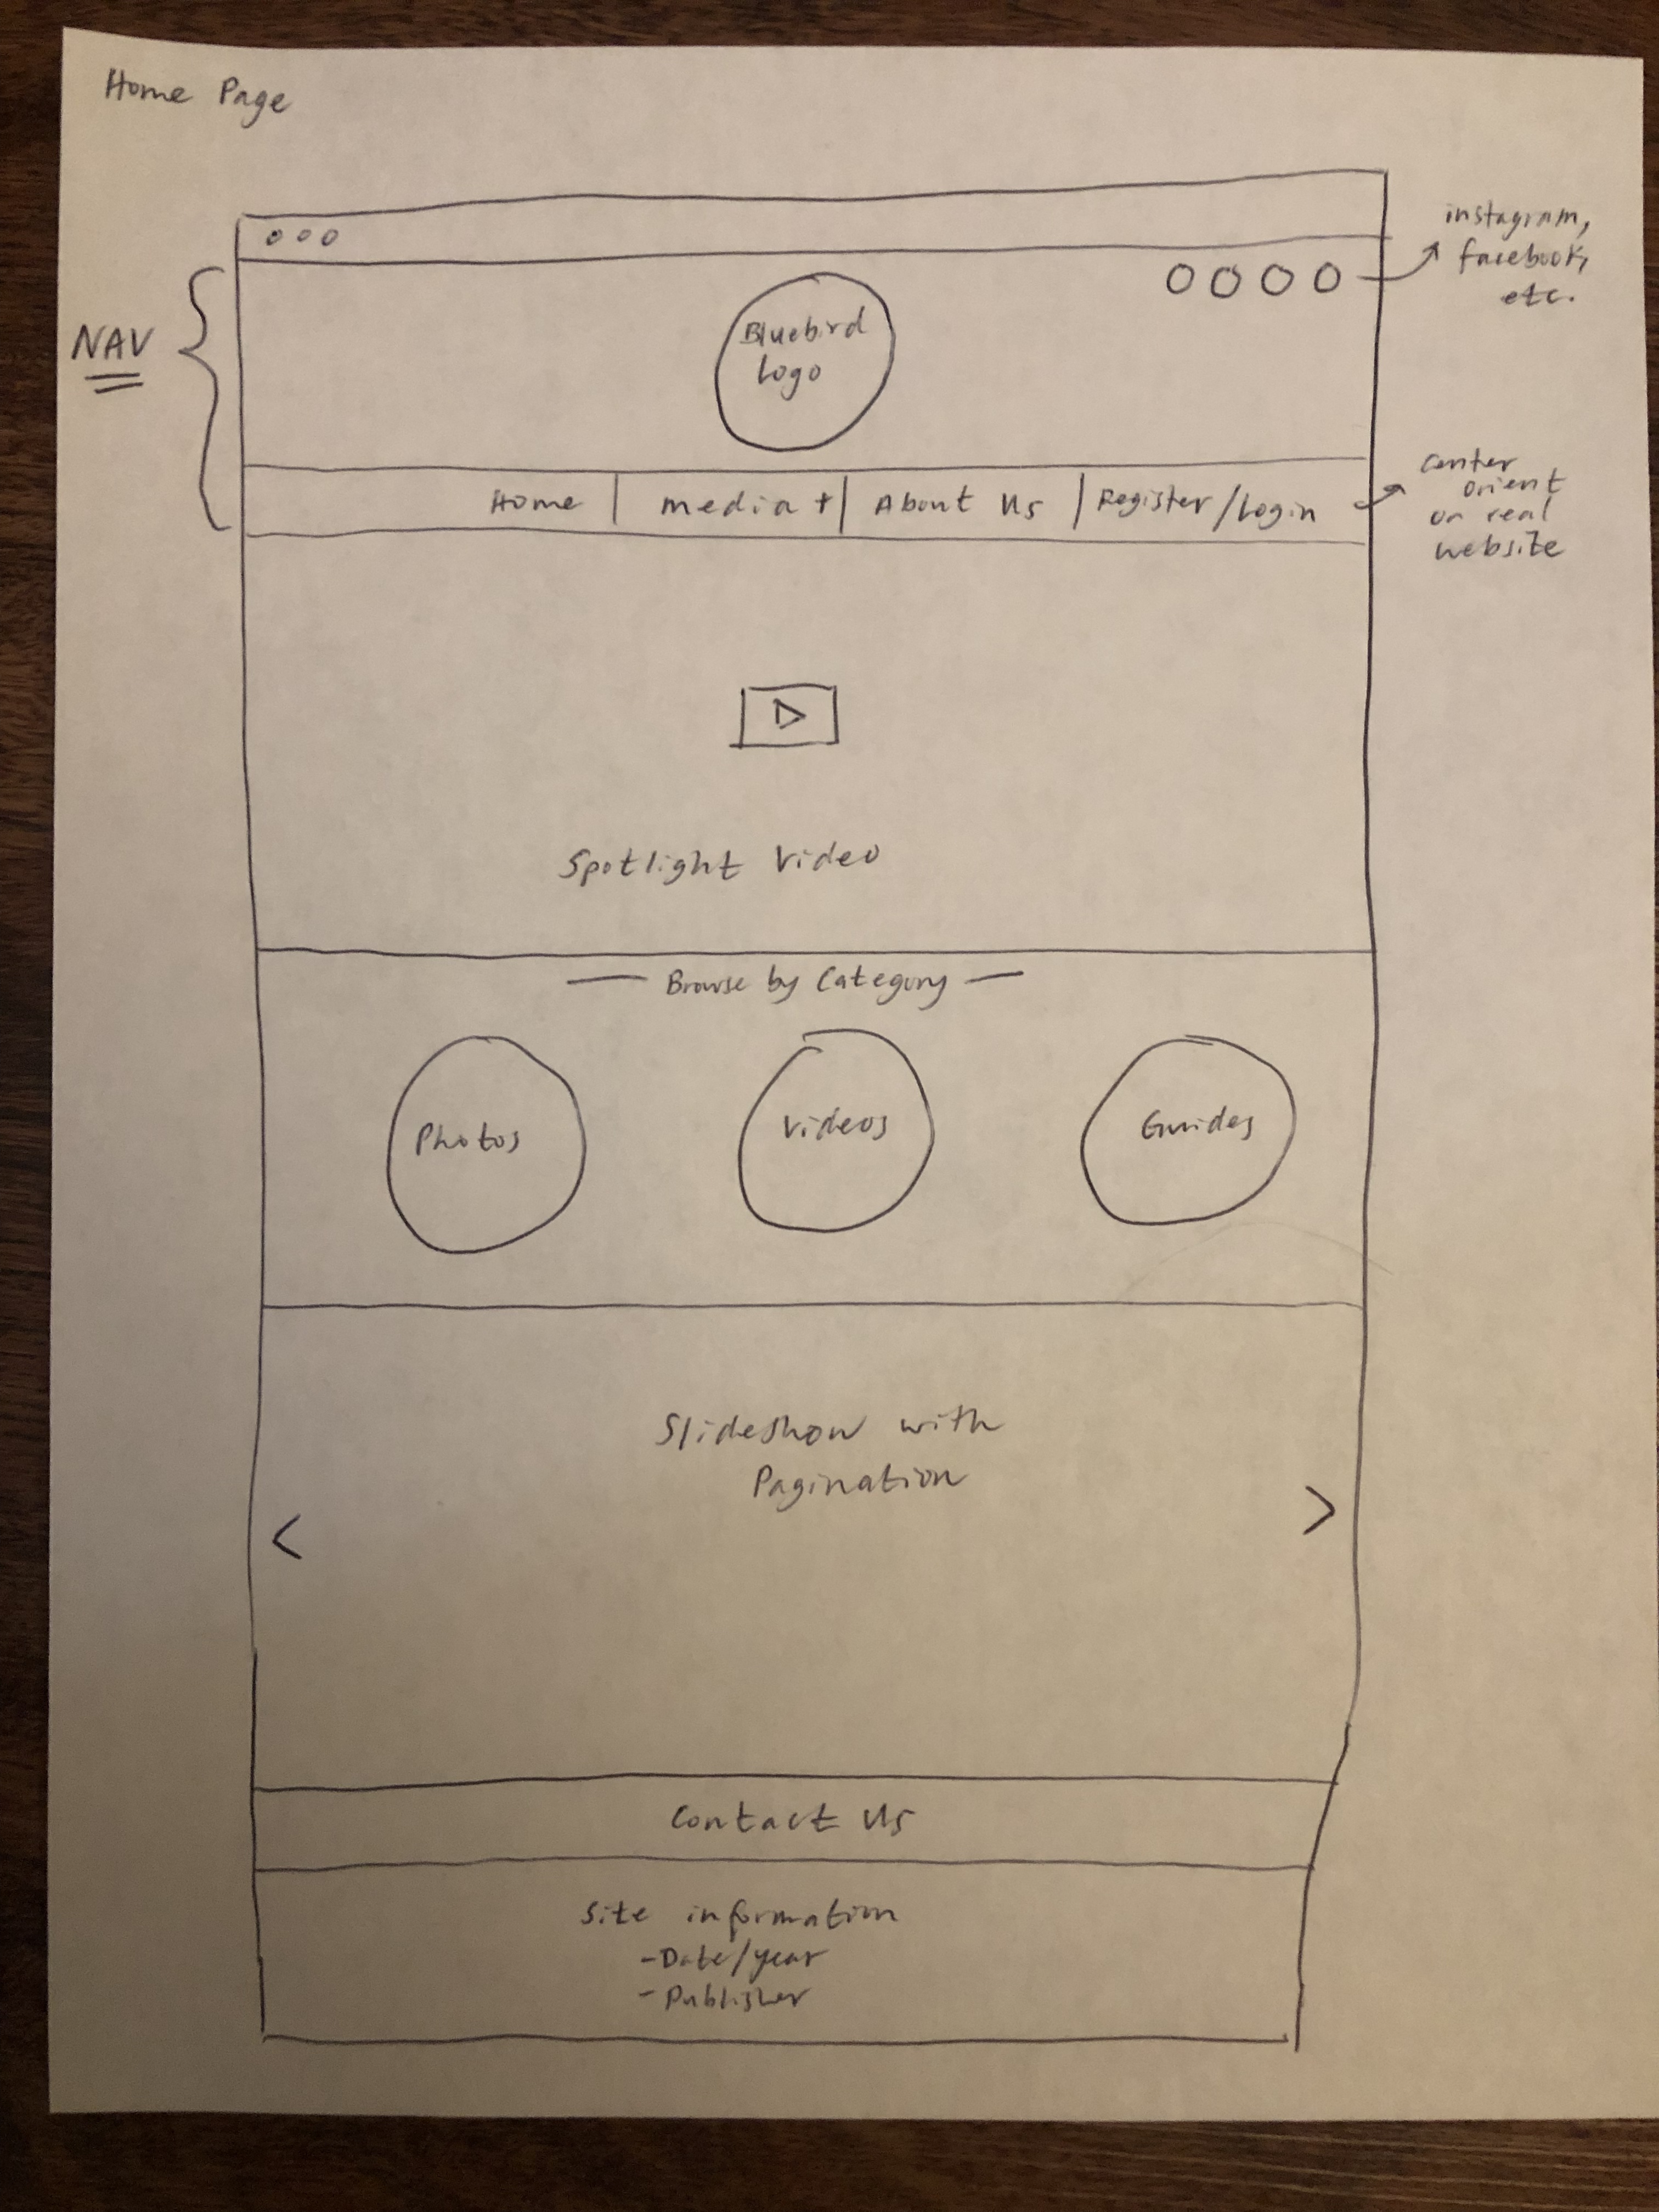 Home Page
instagram,
facebook,
etc.
NAV
Bluebird
Logo
Home | Media + | About Us | Register/Login
center
orient
on real
website
Spotlight Video
— Browse by Category —
Photos
Videos
Guides
Slideshow with
Pagination
< >
Contact Us
Site information
- Date/year
- Publisher